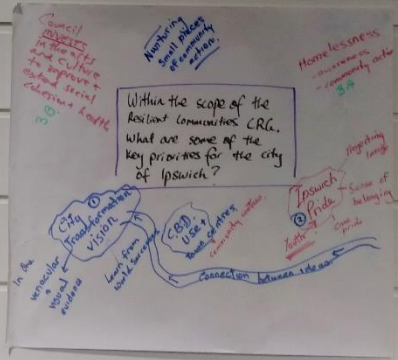 Council
invests
in the arts
and culture
to improve +
extend social
cohesion + health
Nurturing
small pieces
of community
action.
Homelessness
- awareness
- community action
Within the scope of the
Resilient Communities CRG.
What are some of the
key priorities for the city
of Ipswich?
City
Transformation
vision
1
in the
venacular
+
visual
evidence
Learn from
world successes
CBD
use +
town centres
community centres
Ipswich
Pride
2
Sense of
belonging
Youth
pride
Connection between ideas